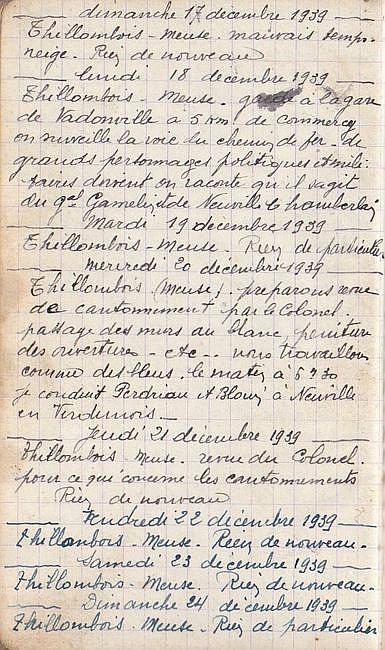 dimanche 17 décembre 1939
Thillombois - Meuse. mauvais temps
neige. Rien de nouveau
lundi 18 décembre 1939
Thillombois - Meuse. garde à la gare
de Vadonville à 5 km de Commercy
on surveille la voie du chemin de fer. de
grands personnages politiques et mili-
taires doivent on raconte qu'il s'agit
du Gal Gamelin et de Neuville Chamberlain
Mardi 19 décembre 1939
Thillombois - Meuse. Rien de particulier
mercredi 20 décembre 1939
Thillombois (Meuse). préparons revue
de cantonnement par le Colonel.
passage des murs au blanc, peinture
des ouvertures - etc.. nous travaillons
comme des bleus. le matin à 6h30
je conduit Perdriau et à Neuville
en Verdunois.
Jeudi 21 décembre 1939
Thillombois. Meuse. revue du Colonel.
pour ce qui concerne les cantonnements
Rien de nouveau
Vendredi 22 décembre 1939
Thillombois. Meuse. Rien de nouveau.
Samedi 23 décembre 1939
Thillombois. Meuse. Rien de nouveau.
Dimanche 24 décembre 1939
Thillombois. Meuse. Rien de particulier